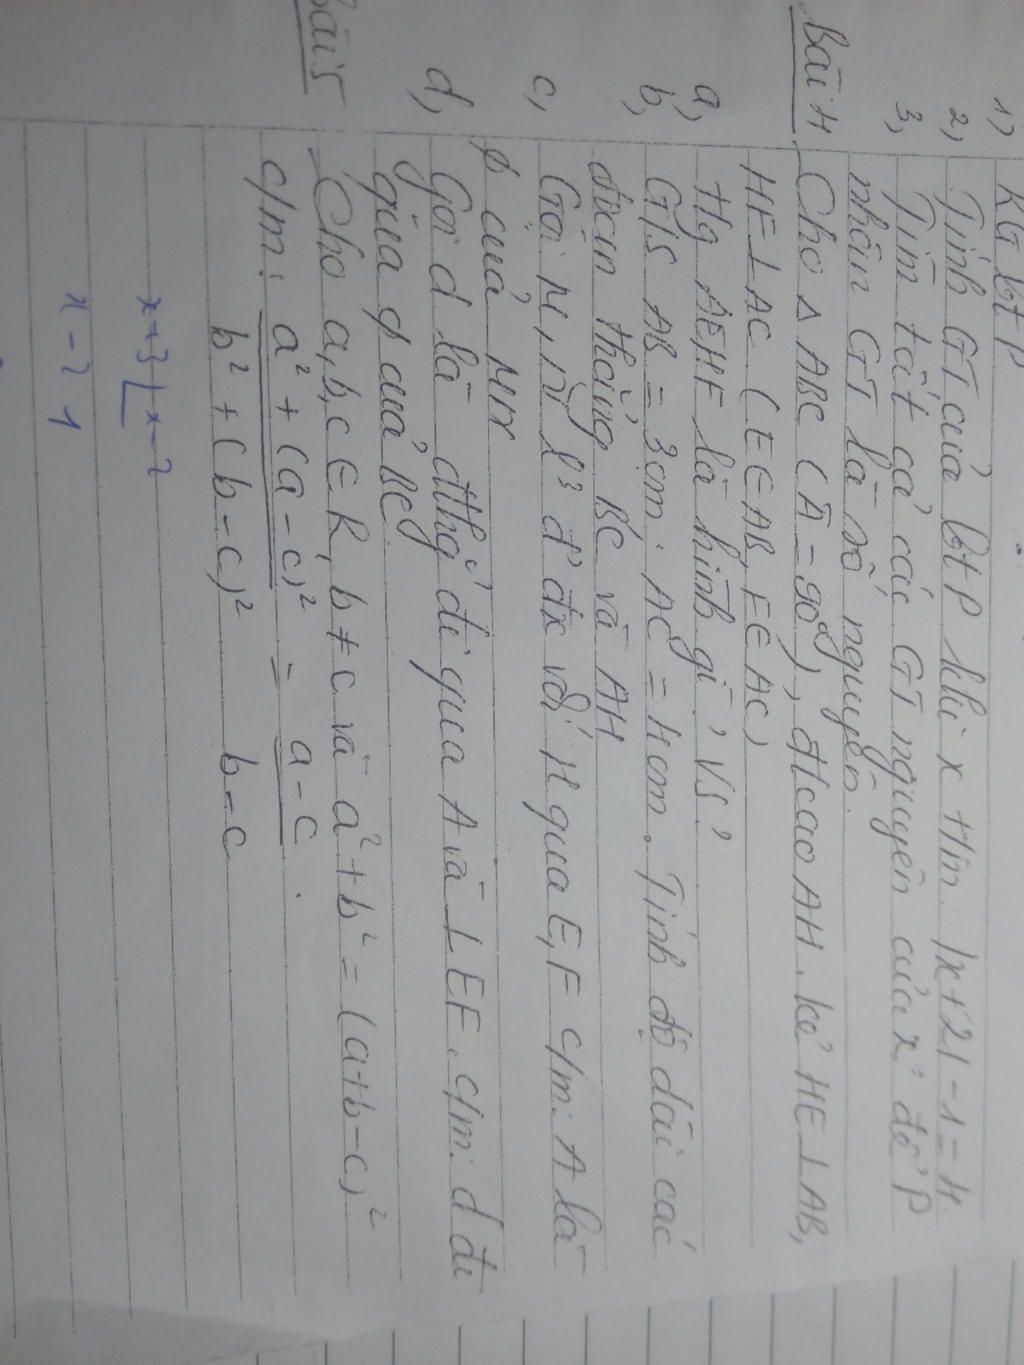 1) RG bt P
2) Tính GT của bt P khi x t/m: |x+2| - 1 = 4.
3) Tìm tất cả các GT nguyên của x để P
nhận GT là số nguyên.
Bài 4 Cho Δ ABC (Â = 90°), đ/cao AH. kẻ HE ⊥ AB,
HF ⊥ AC (E ∈ AB, F ∈ AC)
a) Tg AEHF là hình gì? Vs?
b) G/s AB = 3cm. AC = 4cm. Tính độ dài các
đoạn thẳng BC và AH
c, Gọi M, N l² đ' đx với H qua E, F c/m: A là
của MN
d, Gọi d là đthg đi qua A và ⊥ EF. c/m: d đi
qua của BC
Bài 5 Cho a, b, c ∈ R, b ≠ c và a² + b² = (a+b-c)²
c/m: a² + (a-c)² = a-c.
b² + (b-c)² b-c
x+3 | x-2
x-2 1